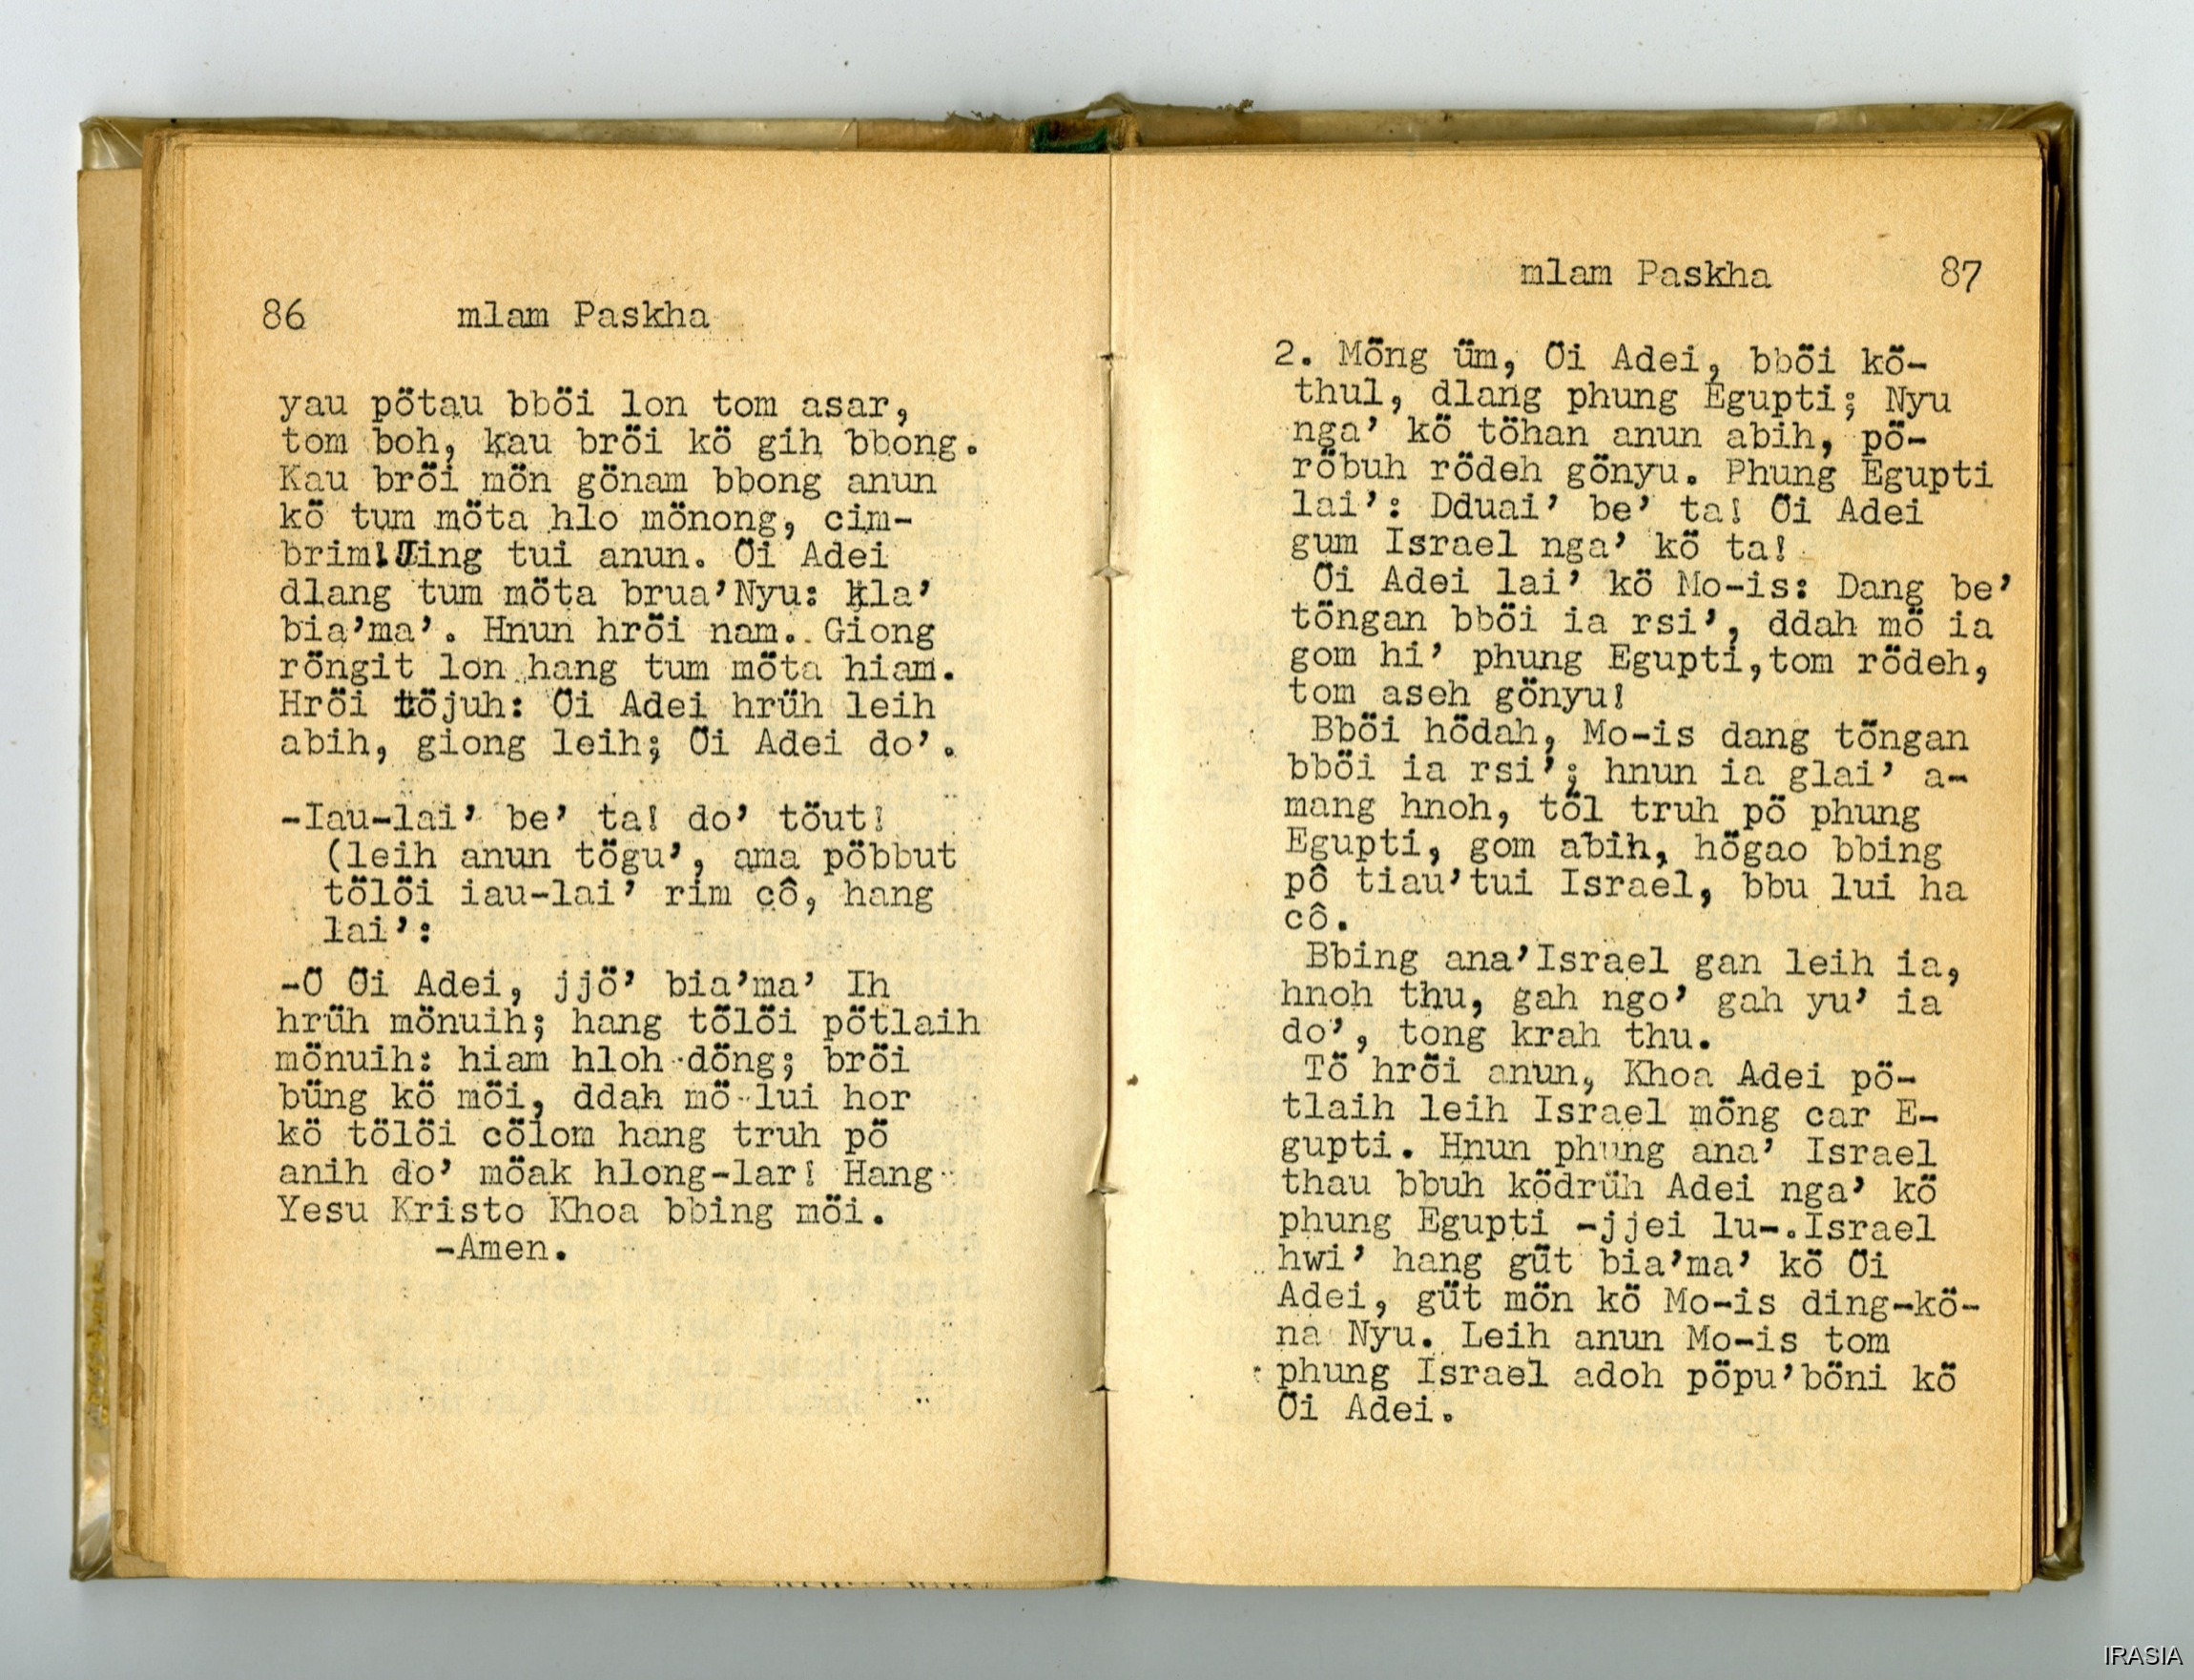 86 mlam Paskha
yau pötau bböi lon tom asar,
tom boh, kau bröi kö gih bbong.
Kau bröi mön gönam bbong anun
kö tum möta hlo mönong, cim-
brim! Jing tui anun. Öi Adei
dlang tum möta brua’Nyu: kla’
bia’ma’. Hnun hröi nam. Giong
röngit lon hang tum möta hiam.
Hröi töjuh: Öi Adei hrüh leih
abih, giong leih; Öi Adei do’.
-Iau-lai’ be’ ta! do’ töut!
(leih anun tögu’, ama pöbbut
tölöi iau-lai’ rim cô, hang
lai’:
-Ö Öi Adei, jjö’ bia’ma’ Ih
hrüh mönuih; hang tölöi pötlaih
mönuih: hiam hloh döng; bröi
büng kö möi, ddah mö lui hor
kö tölöi cölom hang truh pö
anih do’ möak hlong-lar! Hang
Yesu Kristo Khoa bbing möi.
-Amen.
mlam Paskha 87
2. Möng üm, Öi Adei, bböi kö-
thul, dlang phung Egupti; Nyu
nga’ kö töhan anun abih, pö-
röbuh rödeh gönyu. Phung Egupti
lai’: Dduai’ be’ ta! Öi Adei
gum Israel nga’ kö ta!
Öi Adei lai’ kö Mo-is: Dang be’
töngan bböi ia rsi’, ddah mö ia
gom hi’ phung Egupti,tom rödeh,
tom aseh gönyu!
Bböi hödah, Mo-is dang töngan
bböi ia rsi’; hnun ia glai’ a-
mang hnoh, töl truh pö phung
Egupti, gom abih, högao bbing
pô tiau’tui Israel, bbu lui ha
cô.
Bbing ana’Israel gan leih ia,
hnoh thu, gah ngo’ gah yu’ ia
do’, tong krah thu.
Tö hröi anun, Khoa Adei pö-
tlaih leih Israel möng car E-
gupti. Hnun phung ana’ Israel
thau bbuh ködrüh Adei nga’ kö
phung Egupti -jjei lu-.Israel
hwi’ hang güt bia’ma’ kö Öi
Adei, güt mön kö Mo-is ding-kö-
na Nyu. Leih anun Mo-is tom
phung Israel adoh pöpu’böni kö
Öi Adei.
IRASIA